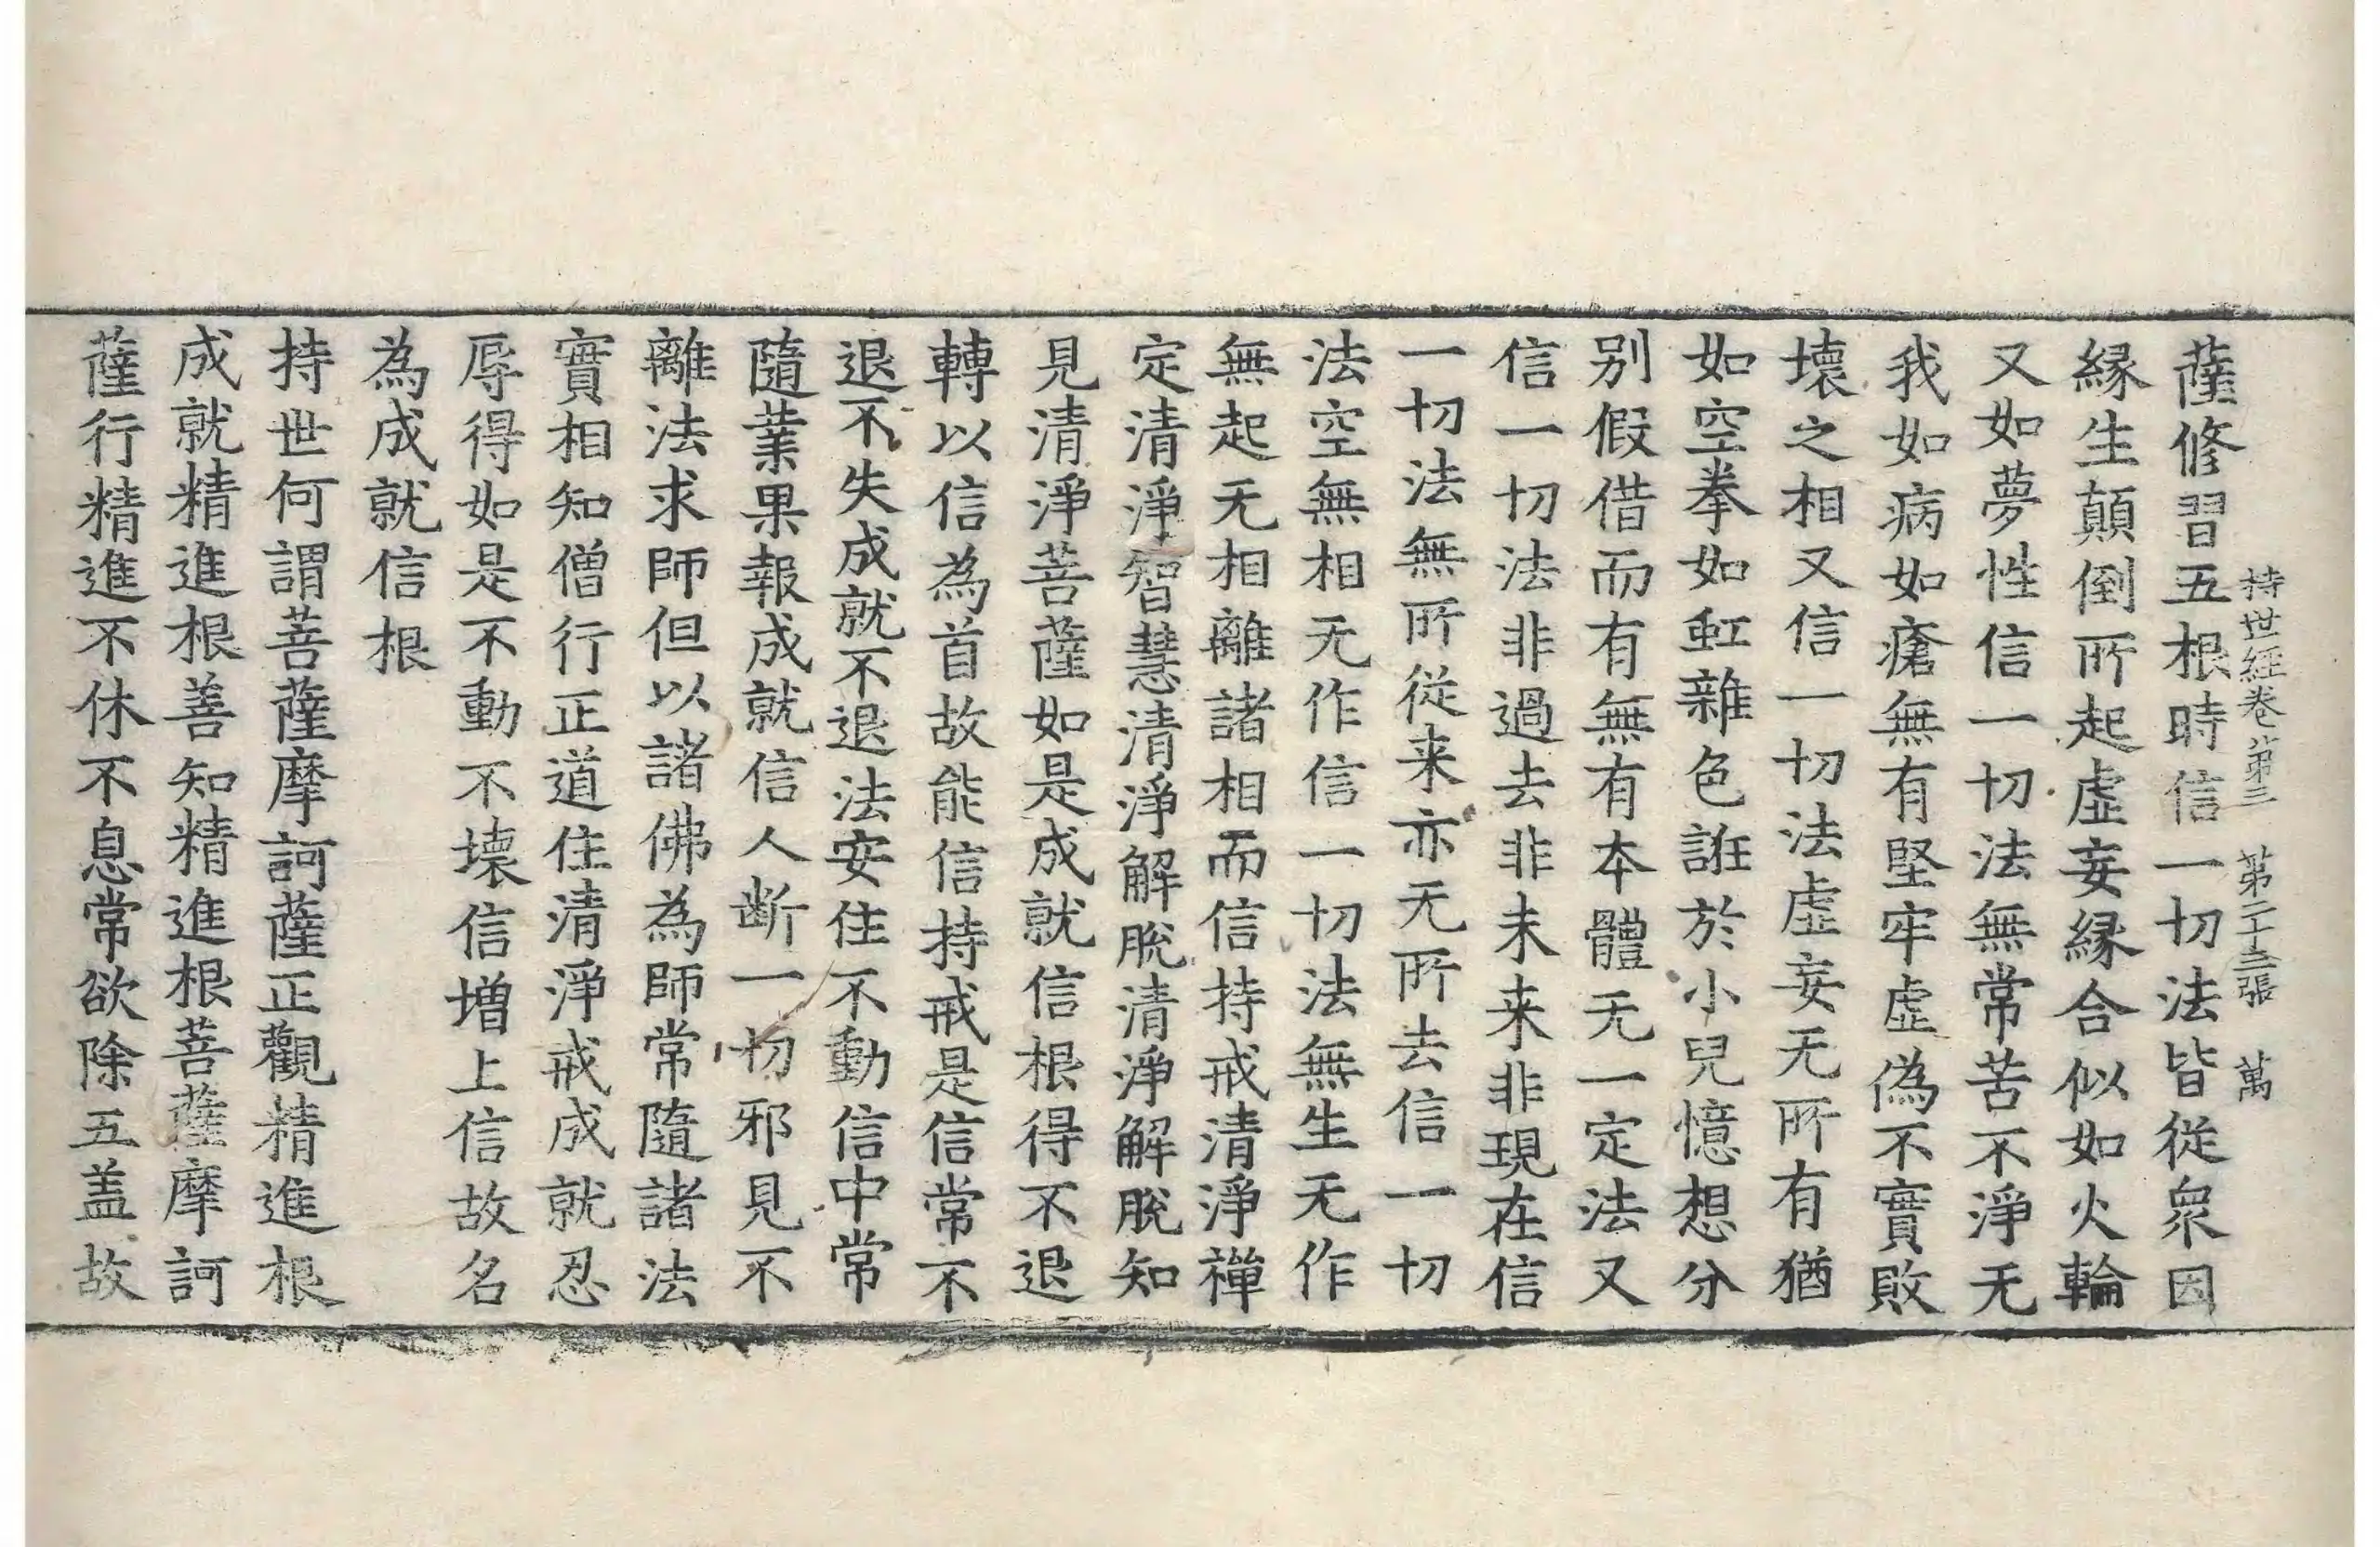 持世經卷第三　第二十三張　萬
薩修習五根時信一切法皆從衆因
緣生顛倒所起虛妄緣合似如火輪
又如夢性信一切法無常苦不淨无
我如病如瘡無有堅牢虛偽不實敗
壞之相又信一切法虛妄无所有猶
如空拳如虹雜色誑於小兒憶想分
别假借而有無有本體无一定法又
信一切法非過去非未来非現在信
一切法無所從来亦无所去信一切
法空無相无作信一切法無生无作
無起无相離諸相而信持戒清淨禪
定清淨智慧清淨解脫清淨解脫知
見清淨菩薩如是成就信根得不退
轉以信為首故能信持戒是信常不
退不失成就不退法安住不動信中常
隨業果報成就信人断一切邪見不
離法求師但以諸佛為師常隨諸法
實相知僧行正道住清淨戒成就忍
辱得如是不動不壞信增上信故名
為成就信根
持世何謂菩薩摩訶薩正觀精進根
成就精進根善知精進根菩薩摩訶
薩行精進不休不息常欲除五盖故